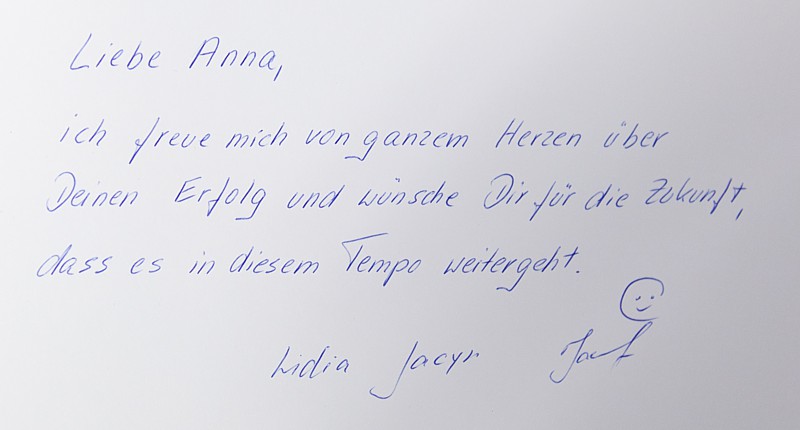 Liebe Anna,
ich freue mich von ganzem Herzen über
Deinen Erfolg und wünsche Dir für die Zukunft,
dass es in diesem Tempo weitergeht.
Lidia Jacyr